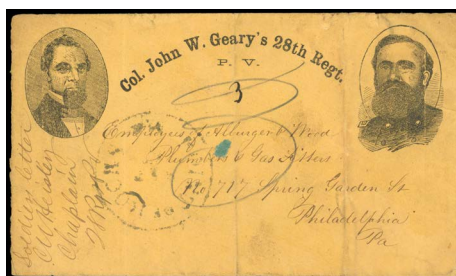 Col. John W. Geary's 28th Regt.
P. V.
3
Employees of & Wood
Plumbers & Gas Fitters
No. 717 Spring Garden St
Philadelphia
Pa
Soldier letter
Chaplain